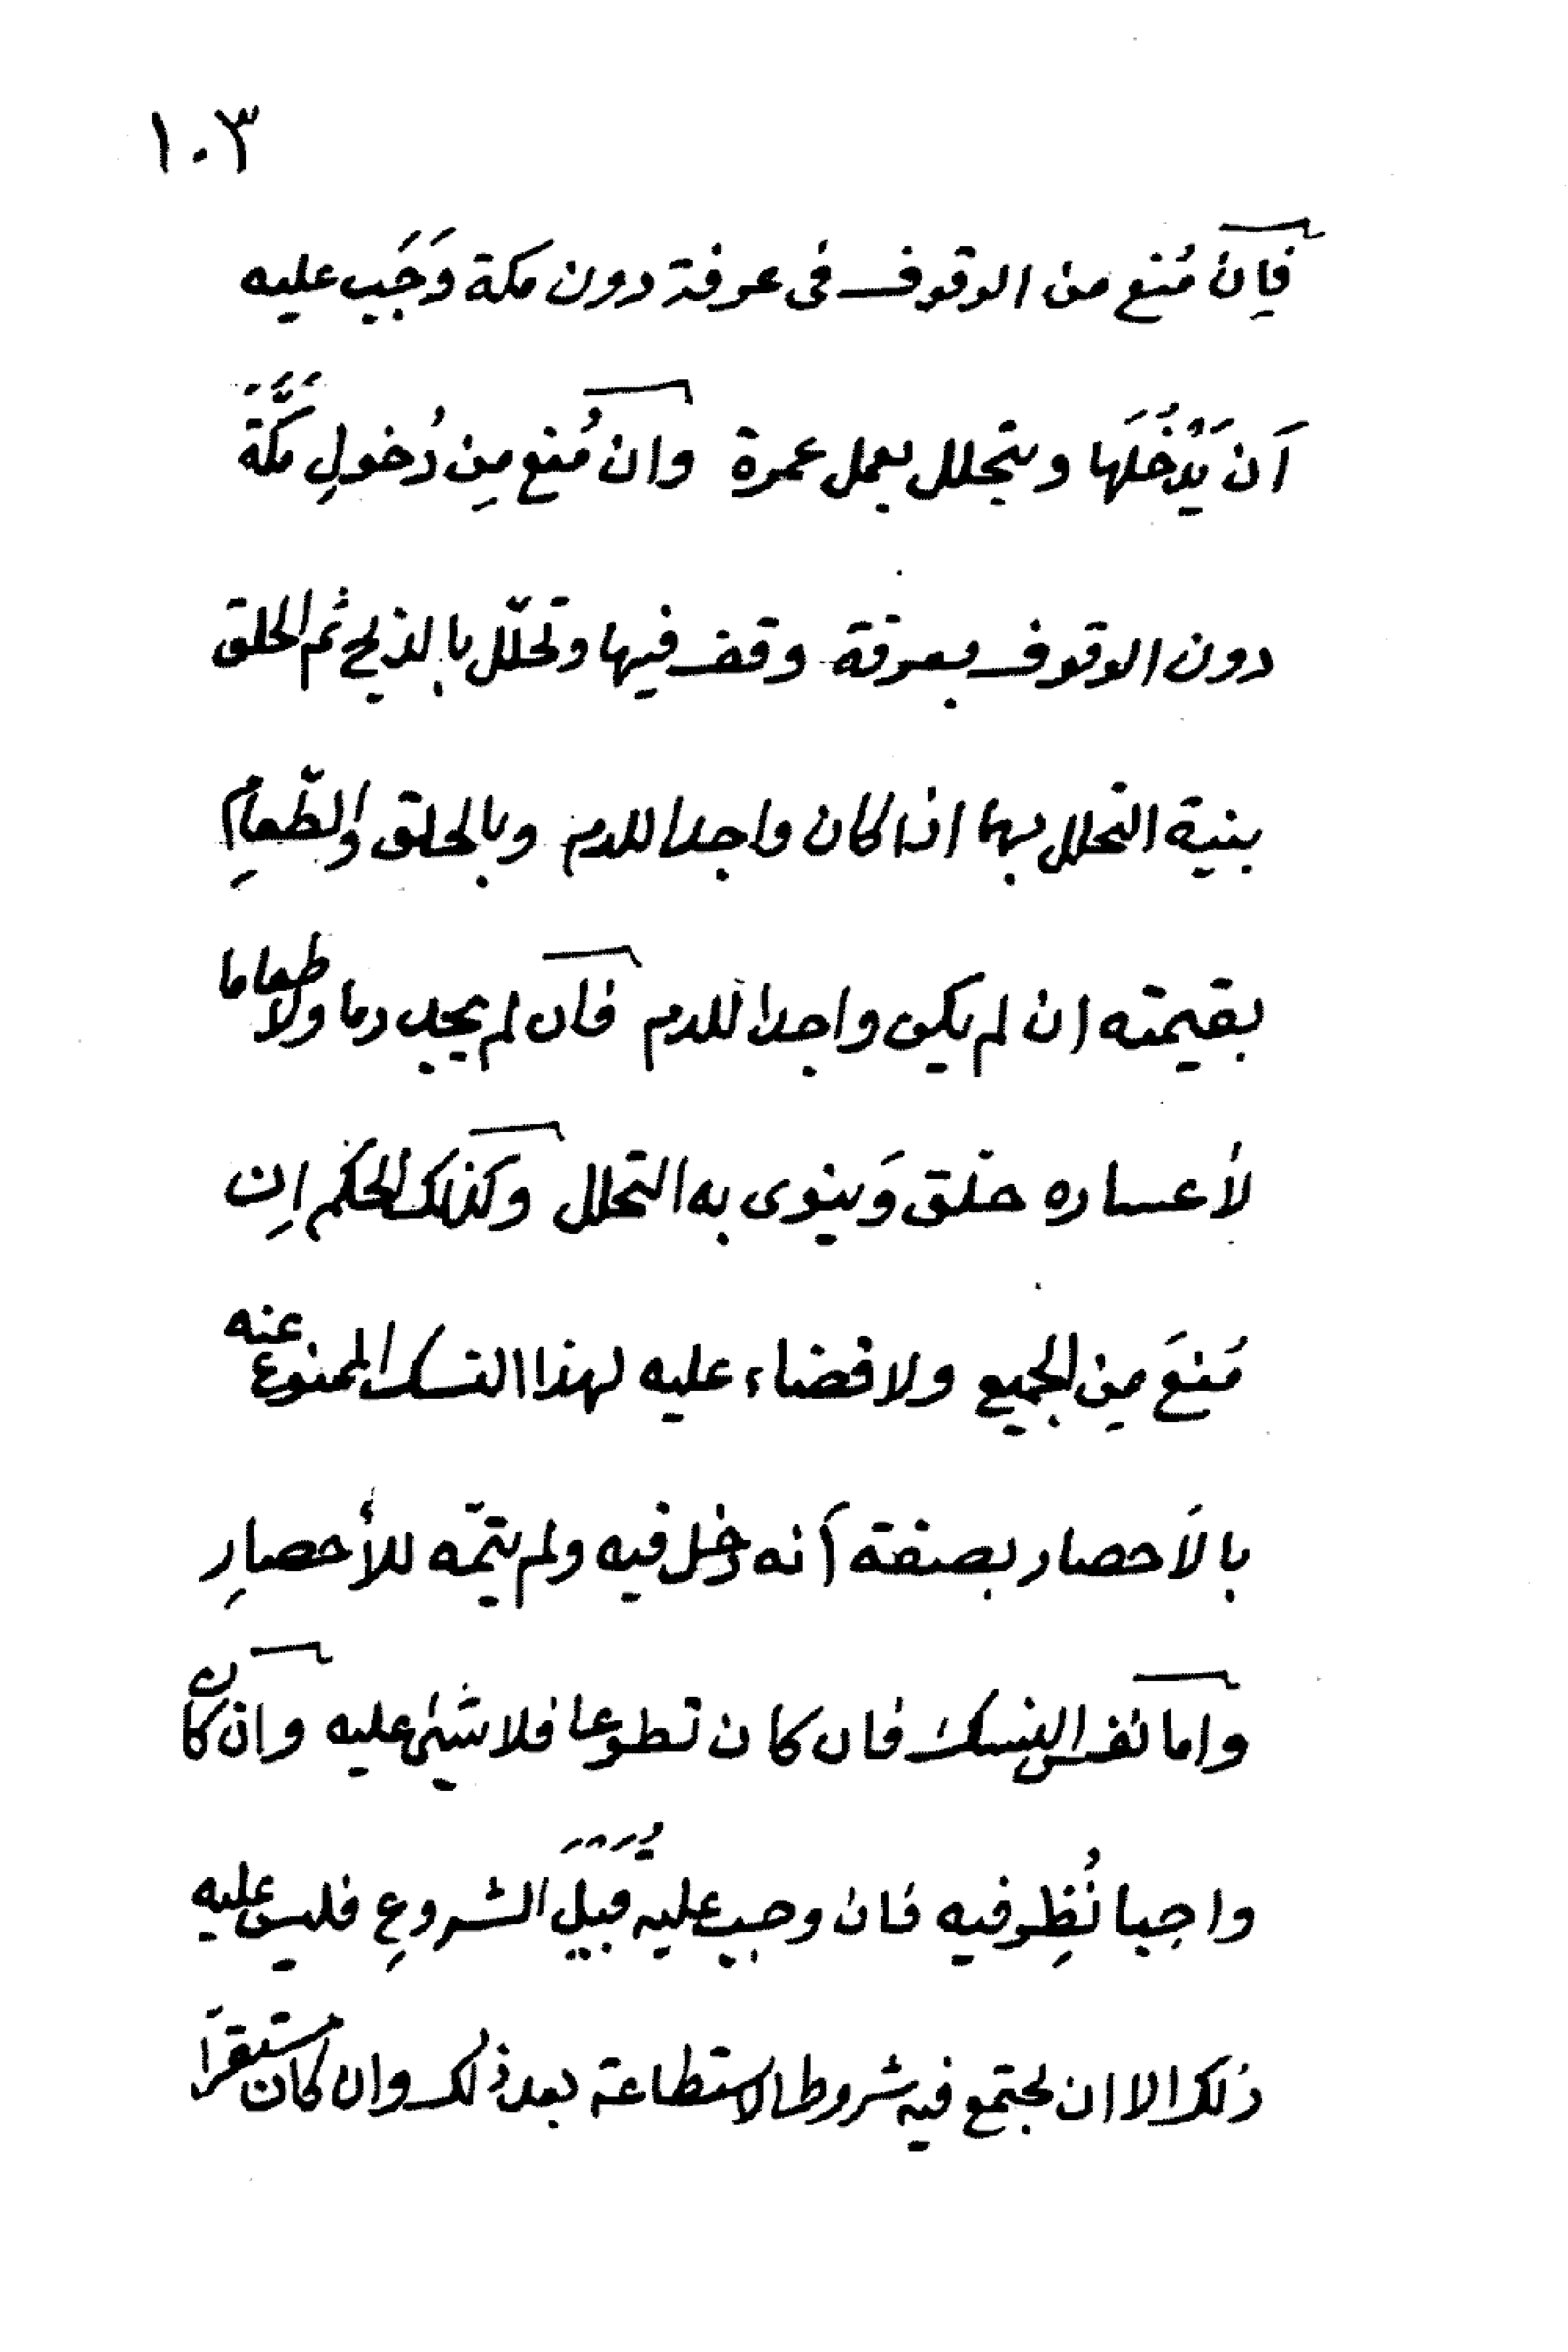 ١٠٣
فإن مُنع من الوقوف فى عرفة دون مكة وَجَب عليه
أَن يَدْخُلَها ويتحلل بعمل عمرة وان مُنع مِن دُخولِ مَكَّةَ
دون الوقوف بعرفة وقف فيها وتحلّل بالذبح ثم الحلق
بنية التحلل بهما اذا كان واجدا للدم وبالحلق والطّعامِ
بقيمته ان لم يكن واجدا للدم فان لم يجد دما ولا طعاما
لأعساره حلق وَينوى به التحلل وكذلك الحكم اِن
مُنعَ مِن الجميع ولا قضاء عليه لهذا النسك الممنوع عنه
بالأحصار بصفة أَنه دخل فيه ولم يتمّه للأحصارِ
واما نفس النسك فان كان تطوعا فلا شيئ عليه وان كان
واجبا نُظِر فيه فان وجب عليه قُبَيْلَ الشروعِ فليس عليه
ذلك الا ان يجتمع فيه شروط الاستطاعة بعد ذلك وان كان مستقرًا